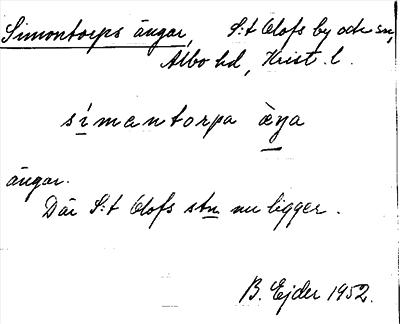 Simontorps ängar, S:t Olofs by och sn,
Albo hd, Krist. l.
simantorpa èŋa
ängar.
Där S:t Olofs stn nu ligger.
B. Ejder 1952.